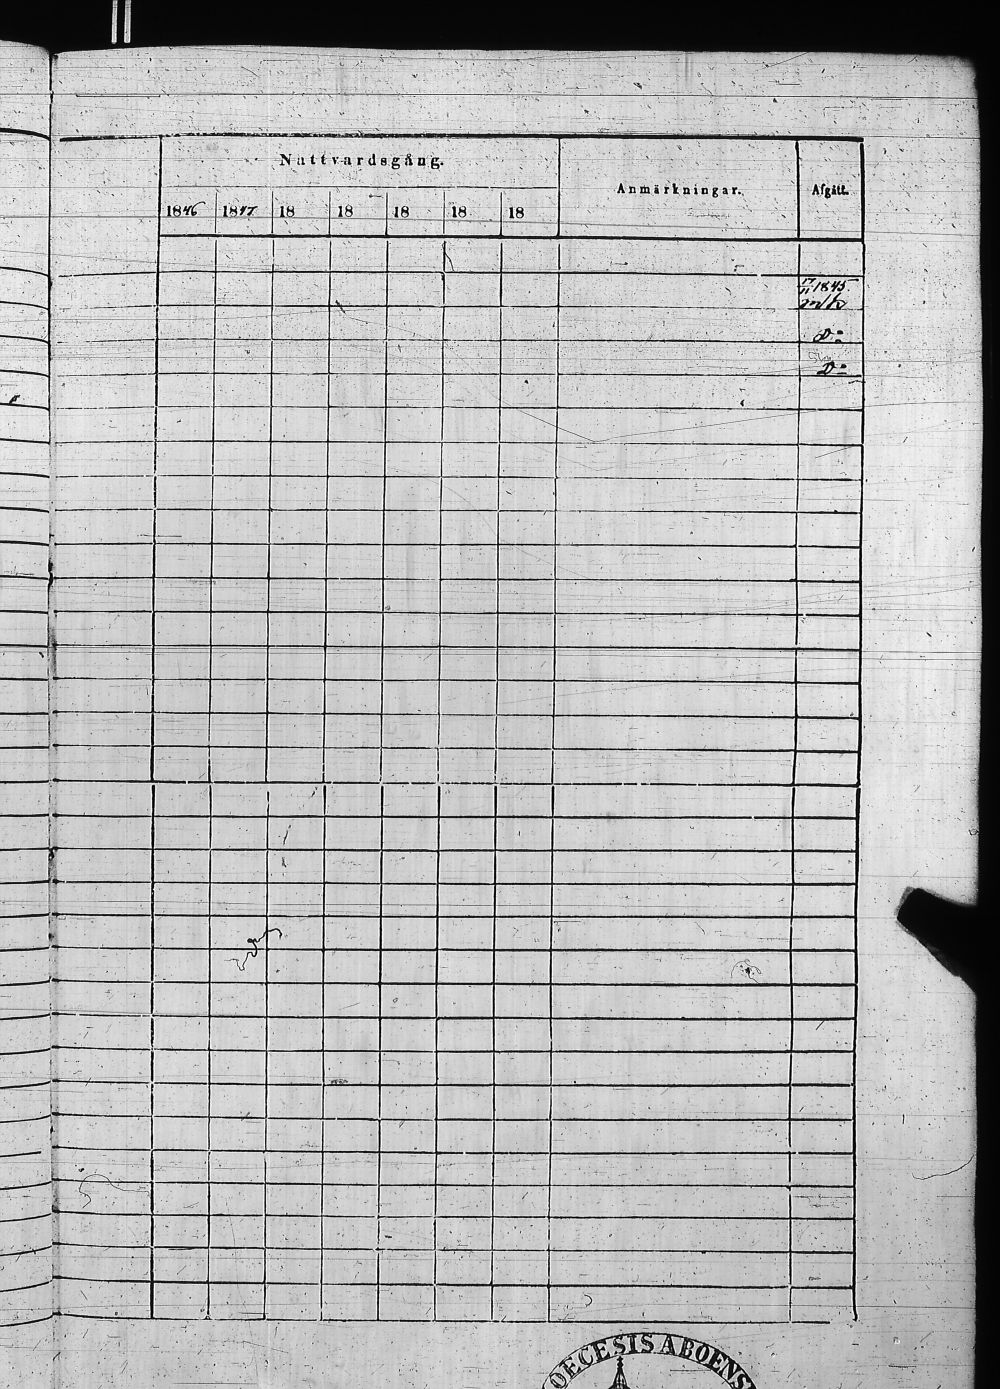 Nattvardsgång.
Anmärkningar.
Afgått.
1846 1847 18 18 18 18 18
17/11 1845
D:o
D:o
OECESIS ABOENS